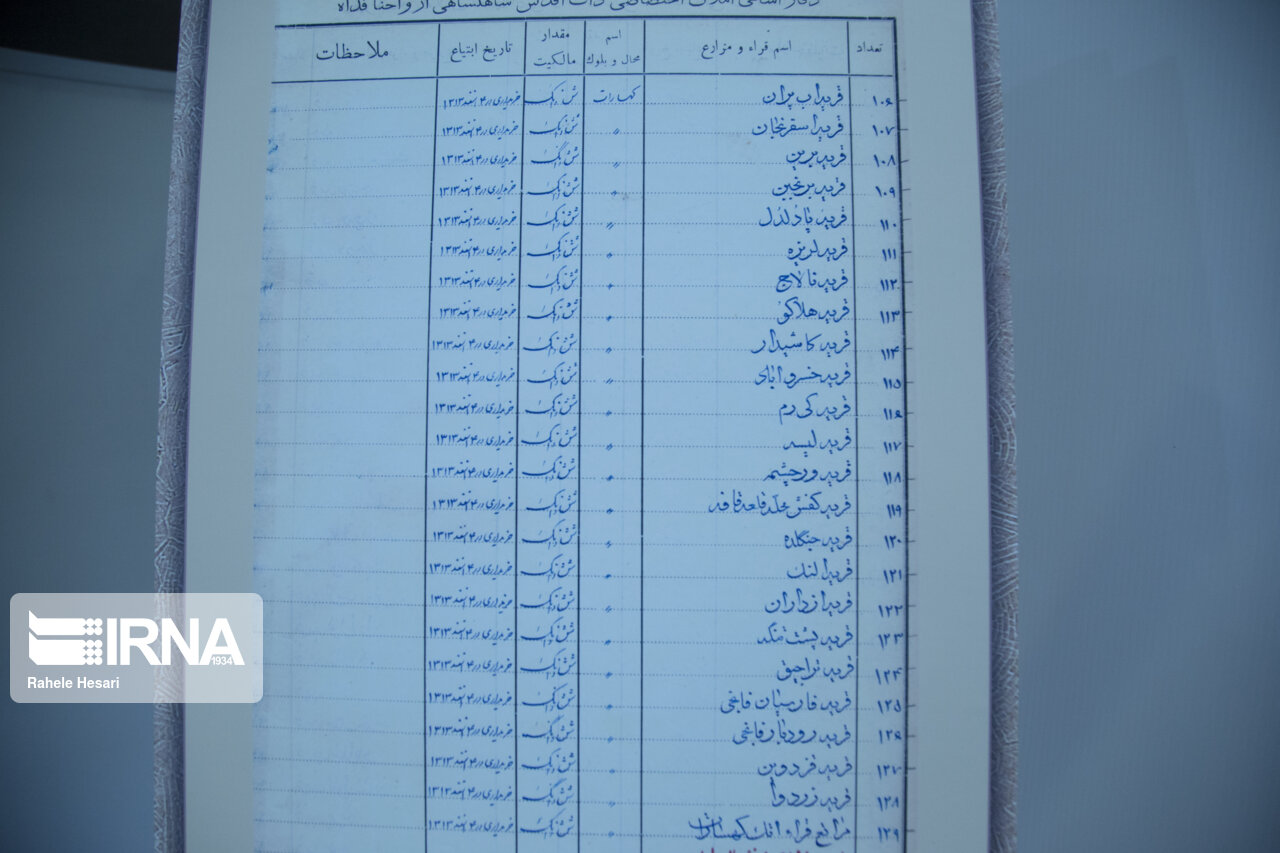 دفتر اسامی املاک اختصاصی ذات اقدس شاهنشاهی ارواحنا فداه
تعداد اسم قراء و مزارع اسم محال و بلوک مقدار مالکیت تاریخ ابتیاع ملاحظات
۱۰۶ قریه آب پران کهسارات ششدانگ خریداری در ۴ اسفند ۱۳۱۳
۱۰۷ قریه اسفرنجان " ششدانگ خریداری در ۴ اسفند ۱۳۱۳
۱۰۸ قریه " ششدانگ خریداری در ۴ اسفند ۱۳۱۳
۱۰۹ قریه برنجبن " ششدانگ خریداری در ۴ اسفند ۱۳۱۳
۱۱۰ قریه پادلدل " ششدانگ خریداری در ۴ اسفند ۱۳۱۳
۱۱۱ قریه لریزه " ششدانگ خریداری در ۴ اسفند ۱۳۱۳
۱۱۲ قریه قالاج " ششدانگ خریداری در ۴ اسفند ۱۳۱۳
۱۱۳ قریه هلاکو " ششدانگ خریداری در ۴ اسفند ۱۳۱۳
۱۱۴ قریه کاشیدار " ششدانگ خریداری در ۴ اسفند ۱۳۱۳
۱۱۵ قریه خسروآباد " ششدانگ خریداری در ۴ اسفند ۱۳۱۳
۱۱۶ قریه کی رم " ششدانگ خریداری در ۴ اسفند ۱۳۱۳
۱۱۷ قریه لیسه " ششدانگ خریداری در ۴ اسفند ۱۳۱۳
۱۱۸ قریه ورچشمه " ششدانگ خریداری در ۴ اسفند ۱۳۱۳
۱۱۹ قریه کفش محله قلعه قافه " ششدانگ خریداری در ۴ اسفند ۱۳۱۳
۱۲۰ قریه جنگلده " ششدانگ خریداری در ۴ اسفند ۱۳۱۳
۱۲۱ قریه النک " ششدانگ خریداری در ۴ اسفند ۱۳۱۳
۱۲۲ قریه ازداران " ششدانگ خریداری در ۴ اسفند ۱۳۱۳
۱۲۳ قریه پشت تنگه " ششدانگ خریداری در ۴ اسفند ۱۳۱۳
۱۲۴ قریه نراجیق " ششدانگ خریداری در ۴ اسفند ۱۳۱۳
۱۲۵ قریه فارسیان قانچی " ششدانگ خریداری در ۴ اسفند ۱۳۱۳
۱۲۶ قریه رودبار قانچی " ششدانگ خریداری در ۴ اسفند ۱۳۱۳
۱۲۷ قریه قزدوین " ششدانگ خریداری در ۴ اسفند ۱۳۱۳
۱۲۸ قریه زردوا " ششدانگ خریداری در ۴ اسفند ۱۳۱۳
۱۲۹ مراتع قراء " ششدانگ خریداری در ۴ اسفند ۱۳۱۳
IRNA
1934
Rahele Hesari